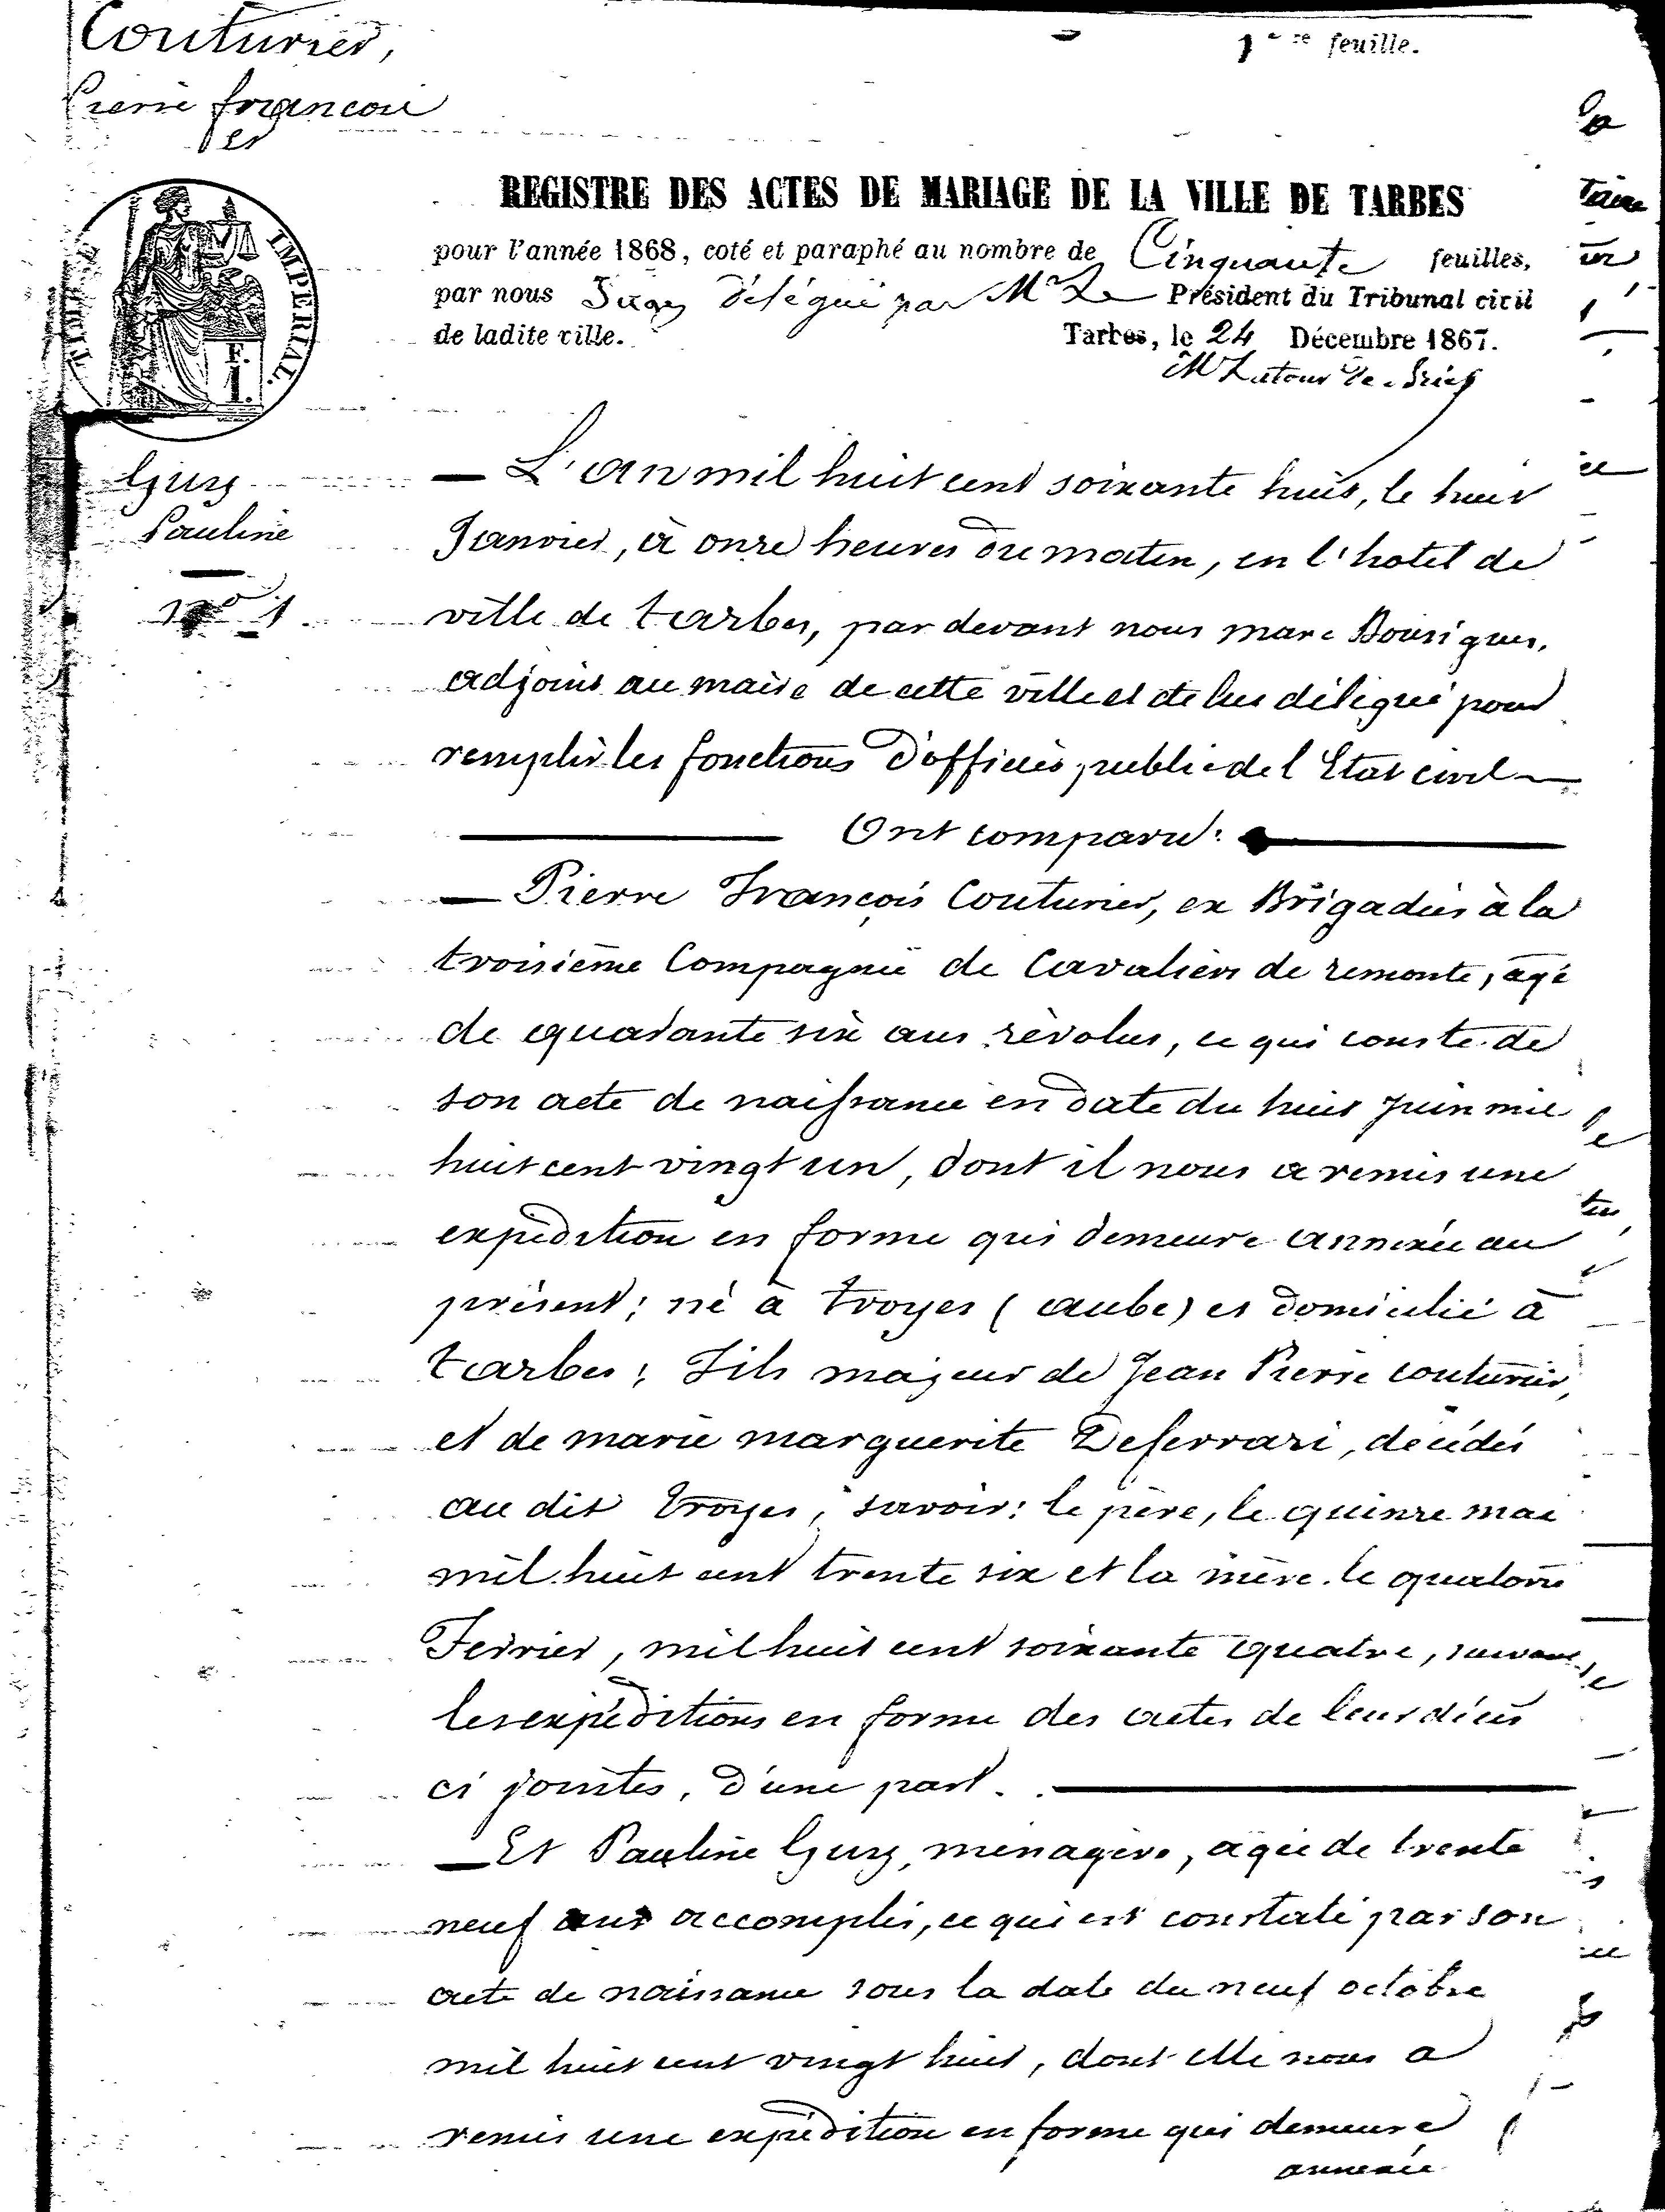 Couturier,
Pierre françois
et
1ère feuille.
REGISTRE DES ACTES DE MARIAGE DE LA VILLE DE TARBES
pour l'année 1868, coté et paraphé au nombre de Cinquante feuilles,
par nous Juge délégué par Mr Le Président du Tribunal civil
de ladite ville. Tarbes, le 24 Décembre 1867.
IMPÉRIAL.
F.
1.
Guy
Pauline
No 1
— L'an mil huit cent soixante huit, le huit
Janvier, à onze heures du matin, en l'hotel de
ville de tarbes, par devant nous marc Bousigues,
adjoint au maire de cette ville et de lui délégué pour
remplir les fonctions d'officier public de l'Etat civil —
Ont comparu :
— Pierre François Couturier, ex Brigadier à la
troisième Compagnie de Cavaliers de remonte, agé
de quarante six ans révolus, ce qui conste de
son acte de naissance en date du huit Juin mil
huit cent vingt un, dont il nous a remis une
expédition en forme qui demeure annexée au
présent ; né à troyes (aube) et domicilié à
tarbes ; Fils majeur de Jean Pierre couturier,
et de marie marguerite Deferrari, décédés
au dit troyes, savoir : le père, le quinze mai
mil huit cent trente six et la mère le quatorze
Fevrier, mil huit cent soixante quatre, suivant
les expéditions en forme des actes de leur décès
ci jointes, d'une part. —
— Et Pauline Guy, ménagère, agée de trente
neuf ans accomplis, ce qui est constaté par son
acte de naissance sous la date du neuf octobre
mil huit cent vingt huit, dont elle nous a
remis une expédition en forme qui demeure
annexée